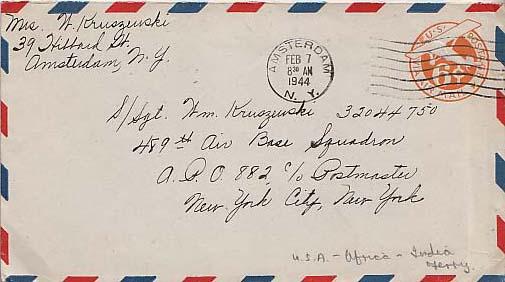 Mrs. W. Kruszewski
39 Hibbard St.
Amsterdam, N.Y.
AMSTERDAM
FEB 7
8 30 AM
1944
N. Y.
U.S. POSTAGE
6¢
VIA AIR MAIL
S/Sgt. Wm. Kruszewski 32044750
489th Air Base Squadron
A.P.O. 882 c/o Postmaster
New York City, New York
U.S.A. - Africa - India
Ferry.